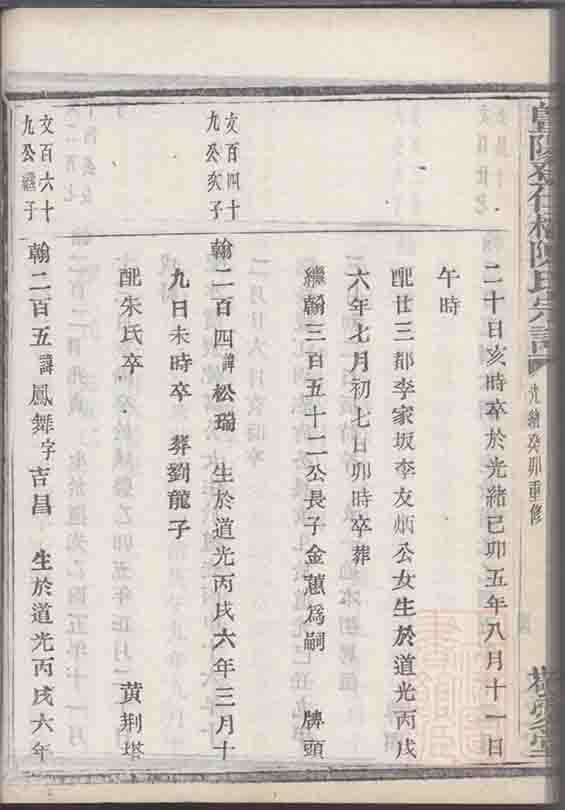 暨陽
陳氏宗譜
光緒癸卯重修
二十日亥時卒於光緒己卯五年八月十一日
午時
配廿三都李家坂李友炳公女生於道光丙戌
六年七月初七日卯時卒葬
繼翰三百五十二公長子金蕙為嗣 牌頭
文百四十
九公亥子
翰二百四諱松瑞 生於道光丙戌六年三月十
九日未時卒 葬劉龍子
配朱氏卒 黃荆塔
文百六十
九公繼子
翰二百五諱鳳舞字吉昌 生於道光丙戌六年